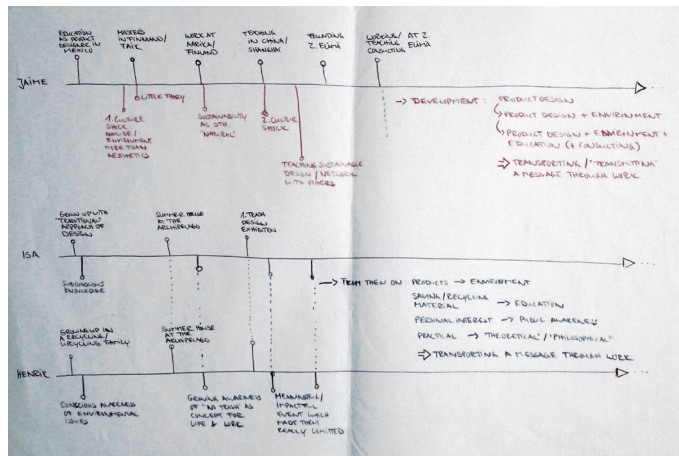 EDUCATION
AS PRODUCT
DESIGNER IN
MEXICO
MASTERS
IN FINNLAND/
TAIK
WORK AT
AARIKKA/
FINLAND
TEACHING
IN CHINA/
SHANGHAI
FOUNDING
2. ELÄMÄ
WORKING/ AT 2.
TEACHING ELÄMÄ
CONSULTING
JAIME
LITTLE THEORY
1. CULTURE
SHOCK
NATURE/
ENVIRONMENT
MORE THAN
AESTHETICS
SUSTAINABILITY
AS STH.
'NATURAL'
2. CULTURE
SHOCK
TEACHING SUSTAINABLE
DESIGN / NETWORK
WITH OTHERS
→ DEVELOPMENT: PRODUCT DESIGN
PRODUCT DESIGN + ENVIRONMENT
PRODUCT DESIGN + ENVIRONMENT +
EDUCATION (+ CONSULTING)
⇒ TRANSPORTING / "TRANSMITTING"
A MESSAGE THROUGH WORK
GROWN UP WITH
"TRADITIONAL"
APPROACH OF
DESIGN
SUMMER HOUSE
AT THE
ARCHIPELAGO
1. TRASH
DESIGN
EXHIBITION
ISA
SUBCONSCIOUS
KNOWLEDGE
→ FROM THEN ON PRODUCTS → ENVIRONMENT
SAVING/RECYCLING
MATERIAL → EDUCATION
PERSONAL INTEREST → PUBLIC AWARENESS
PRACTICAL → 'THEORETICAL'/'PHILOSOPHICAL'
⇒ TRANSPORTING A MESSAGE THROUGH WORK
GROWING UP IN
A RECYCLING/
UPCYCLING FAMILY
SUMMER HOUSE
AT THE
ARCHIPELAGO
HENRIK
CONSCIOUS AWARENESS
OF ENVIRONMENTAL
ISSUES
GROWING AWARENESS
OF "NO TRASH" AS
CONCEPT FOR
LIFE & WORK
MEANINGFUL/
IMPACTFUL
EVENT WHICH
MADE THEM
REALLY COMMITTED